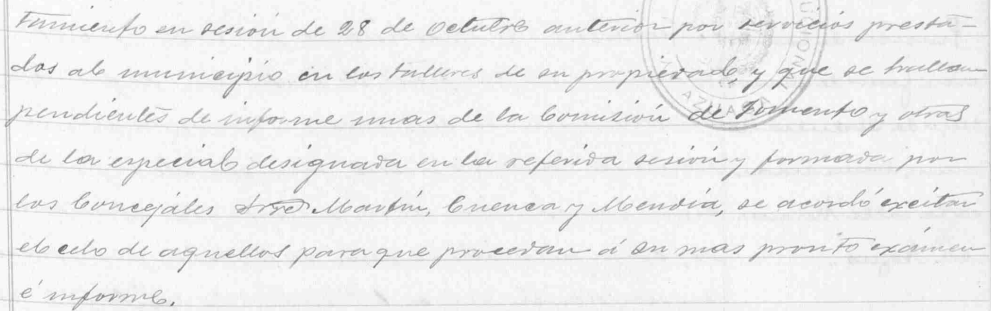 tamiento en sesión de 28 de Octubre anterior por servicios presta-
dos al municipio en los talleres de su propiedad, y que se hallan
pendientes de informe unas de la Comisión de Fomento y otras
de la especial designada en la referida sesión y formada por
los Concejales Sres Martín, Cuenca y Mendía, se acordó excitar
el celo de aquellos para que procedan á su mas pronto exámen
é informe.